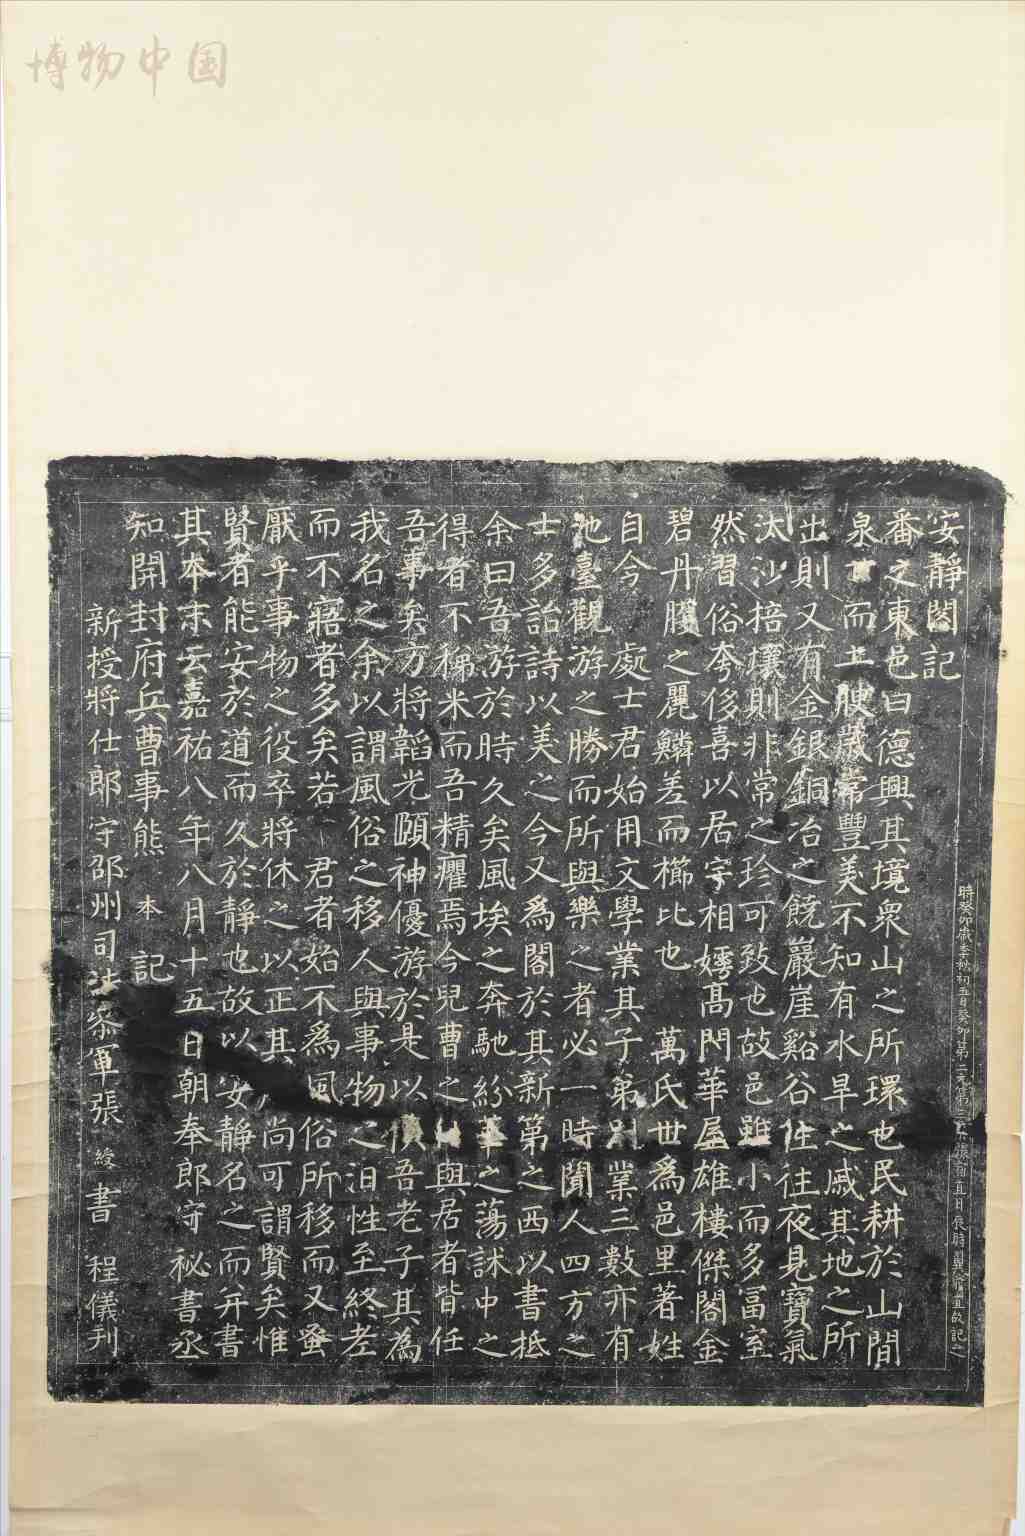 博物中国
安靜閣記
番之東邑曰德興其境衆山之所環也民耕於山間
泉 而土腴歲常豐美不知有水旱之戚其地之所
出則又有金銀銅冶之饒巖崖谿谷往往夜見寶氣
汰沙掊壤則非常之珍可致也故邑雖小而多富室
然習俗夸侈喜以居宇相嫮高門華屋雄樓傑閣金
碧丹臒之麗鱗差而櫛比也 萬氏世爲邑里著姓
自今 處士君始用文學業其子弟別業三數亦有
池臺觀游之勝而所與樂之者必一時聞人四方之
士多詒詩以美之今又爲閣於其新第之西以書抵
余曰吾游於時久矣風埃之奔馳紛華之蕩訹中之
得者不稊米而吾精癯焉今兒曹之 與居者皆任
吾事矣方將韜光頤神優游於是以 吾老子其為
我名之余以謂風俗之移人與事物之汨性至終老
而不寤者多矣若 君者始不爲風俗所移而又蚤
厭乎事物之役卒將休之以正其 尚可謂賢矣惟
賢者能安於道而久於靜也故以安靜名之而并書
其本末云嘉祐八年八月十五日朝奉郎守秘書丞
知開封府兵曹事熊 本 記
新授將仕郎守邵州司法參軍張 綬 書 程儀刊
時癸卯歲季秋初五日癸卯第二元第三 宿直日辰時翼 直故記之